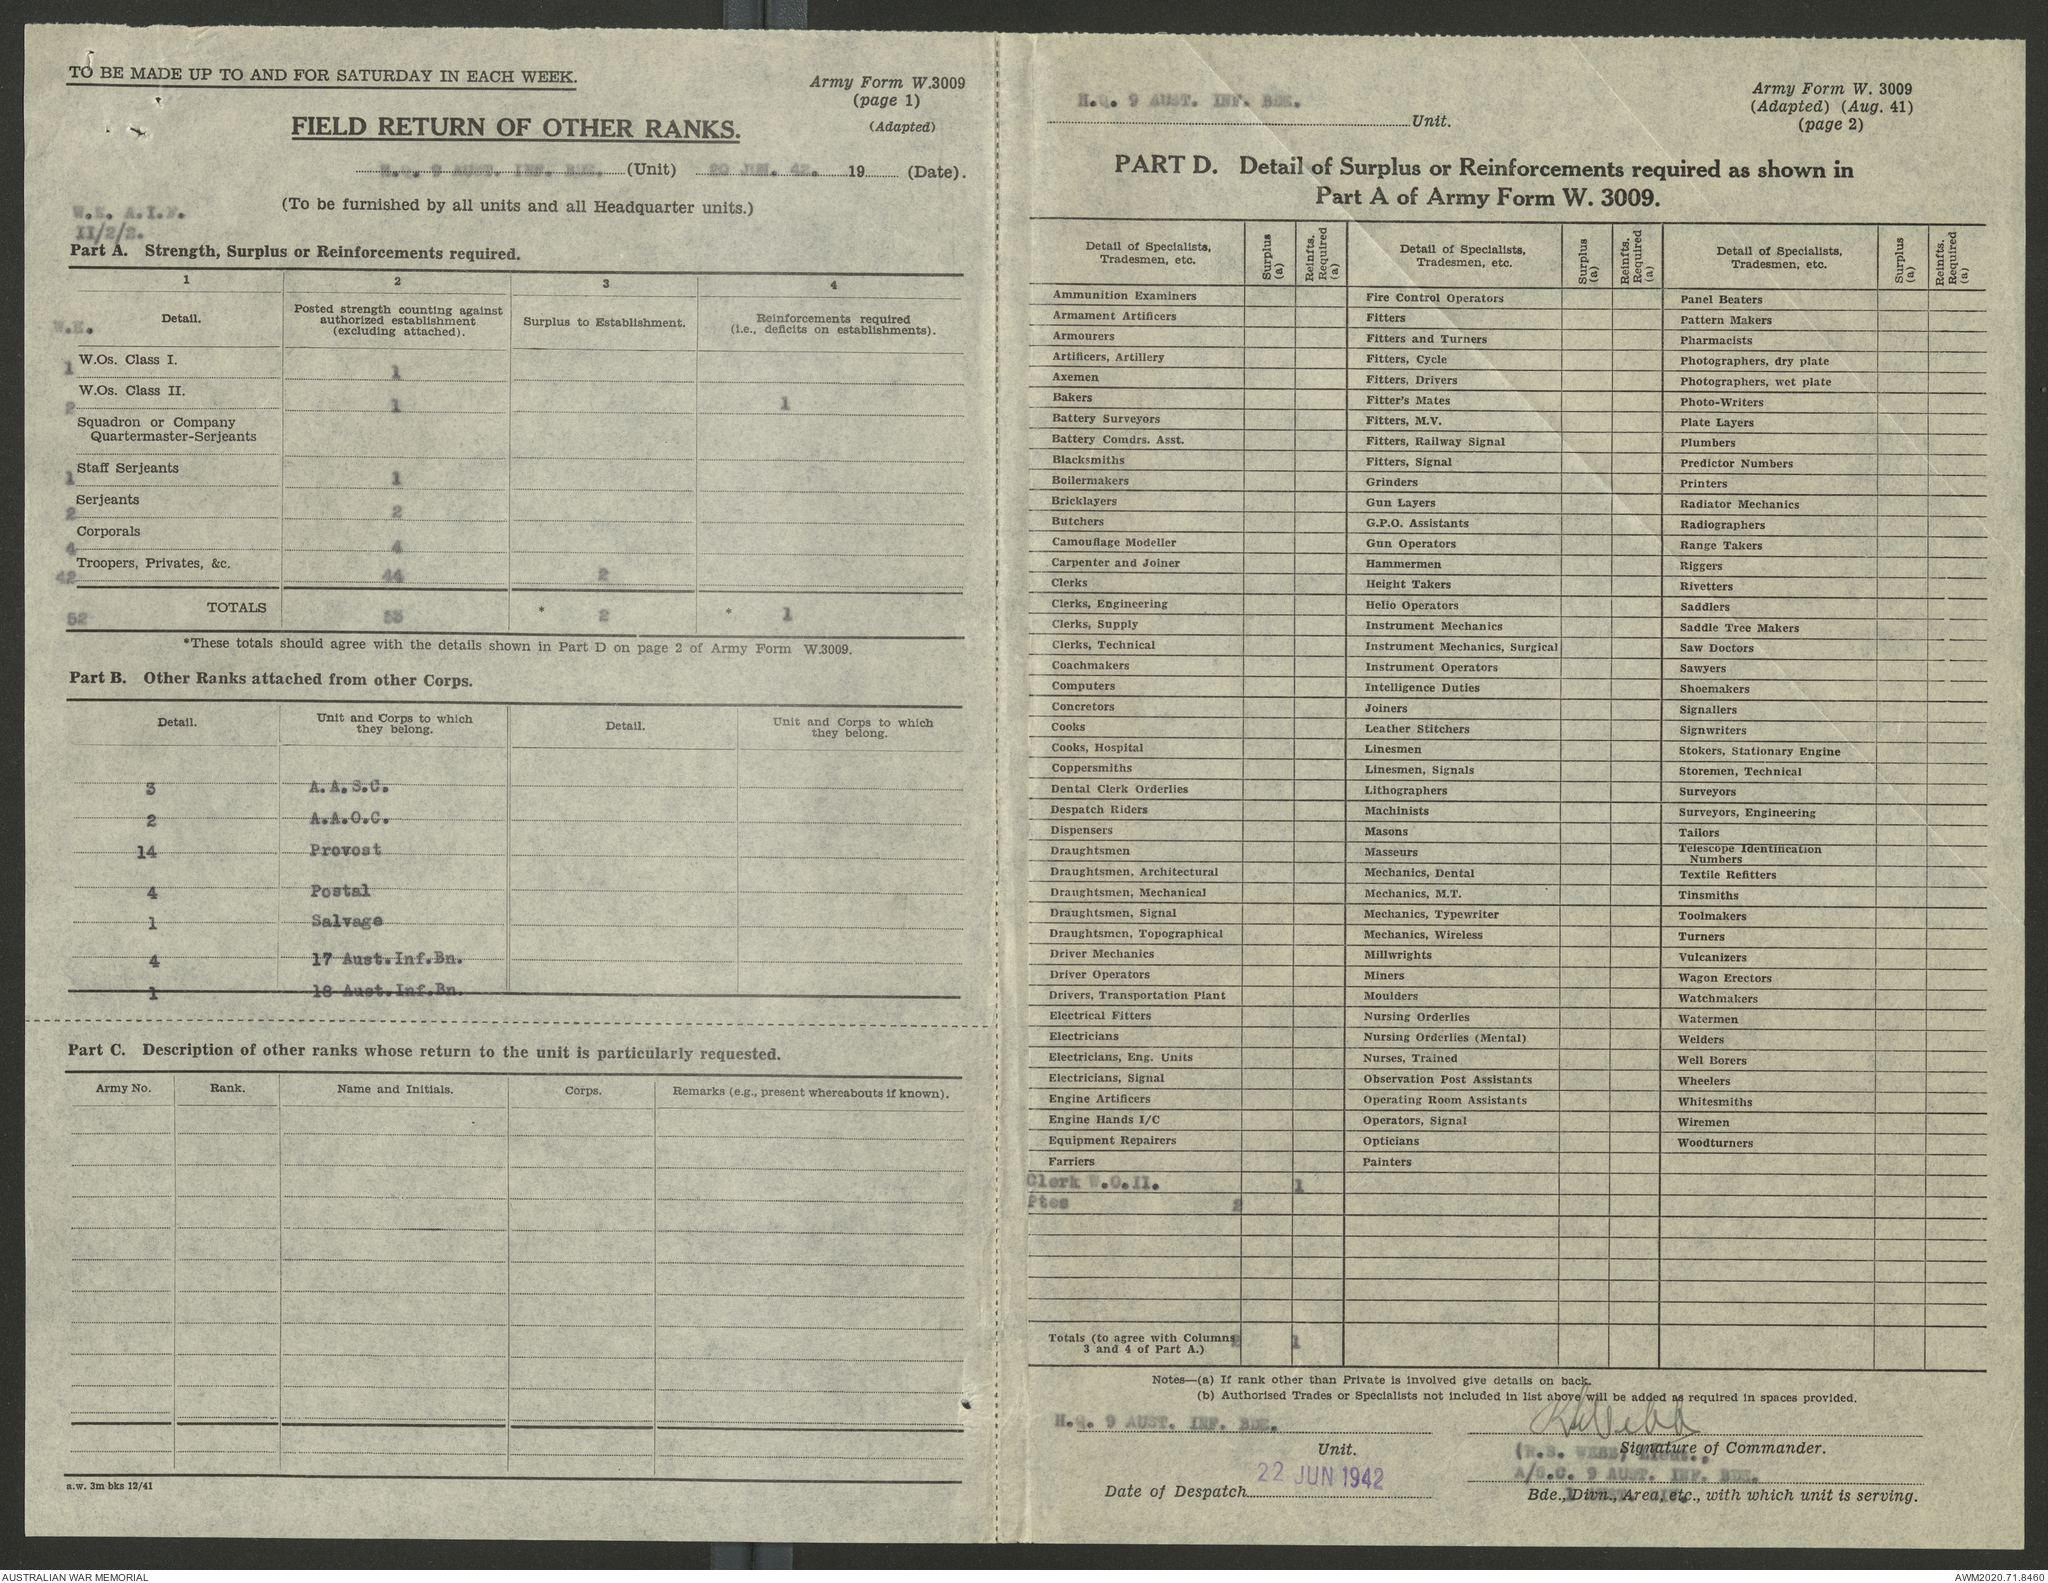 TO BE MADE UP TO AND FOR SATURDAY IN EACH WEEK.
Army Form W.3009
(page 1)
(Adapted)
FIELD RETURN OF OTHER RANKS.
H.Q. 9 AUST. INF. BDE. (Unit) 20 JUN. 42. 19 (Date).
(To be furnished by all units and all Headquarter units.)
W.E. A.I.F.
II/2/2.
Part A. Strength, Surplus or Reinforcements required.
1 2 3 4
W.E. Detail. Posted strength counting against authorized establishment (excluding attached). Surplus to Establishment. Reinforcements required (i.e., deficits on establishments).
1 W.Os. Class I. 1
2 W.Os. Class II. 1 1
Squadron or Company
Quartermaster-Serjeants
1 Staff Serjeants 1
2 Serjeants 2
4 Corporals 4
42 Troopers, Privates, &c. 44 2
52 TOTALS 53 * 2 * 1
*These totals should agree with the details shown in Part D on page 2 of Army Form W.3009.
Part B. Other Ranks attached from other Corps.
Detail. Unit and Corps to which they belong. Detail. Unit and Corps to which they belong.
3 A.A.S.C.
2 A.A.O.C.
14 Provost
4 Postal
1 Salvage
4 17 Aust.Inf.Bn.
1 18 Aust.Inf.Bn.
Part C. Description of other ranks whose return to the unit is particularly requested.
Army No. Rank. Name and Initials. Corps. Remarks (e.g., present whereabouts if known).
a.w. 3m bks 12/41
H.Q. 9 AUST. INF. BDE.
Unit.
Army Form W. 3009
(Adapted) (Aug. 41)
(page 2)
PART D. Detail of Surplus or Reinforcements required as shown in
Part A of Army Form W. 3009.
Detail of Specialists, Tradesmen, etc. Surplus (a) Reinfts. Required (a) Detail of Specialists, Tradesmen, etc. Surplus (a) Reinfts. Required (a) Detail of Specialists, Tradesmen, etc. Surplus (a) Reinfts. Required (a)
Ammunition Examiners Fire Control Operators Panel Beaters
Armament Artificers Fitters Pattern Makers
Armourers Fitters and Turners Pharmacists
Artificers, Artillery Fitters, Cycle Photographers, dry plate
Axemen Fitters, Drivers Photographers, wet plate
Bakers Fitter's Mates Photo-Writers
Battery Surveyors Fitters, M.V. Plate Layers
Battery Comdrs. Asst. Fitters, Railway Signal Plumbers
Blacksmiths Fitters, Signal Predictor Numbers
Boilermakers Grinders Printers
Bricklayers Gun Layers Radiator Mechanics
Butchers G.P.O. Assistants Radiographers
Camouflage Modeller Gun Operators Range Takers
Carpenter and Joiner Hammermen Riggers
Clerks Height Takers Rivetters
Clerks, Engineering Helio Operators Saddlers
Clerks, Supply Instrument Mechanics Saddle Tree Makers
Clerks, Technical Instrument Mechanics, Surgical Saw Doctors
Coachmakers Instrument Operators Sawyers
Computers Intelligence Duties Shoemakers
Concretors Joiners Signallers
Cooks Leather Stitchers Signwriters
Cooks, Hospital Linesmen Stokers, Stationary Engine
Coppersmiths Linesmen, Signals Storemen, Technical
Dental Clerk Orderlies Lithographers Surveyors
Despatch Riders Machinists Surveyors, Engineering
Dispensers Masons Tailors
Draughtsmen Masseurs Telescope Identification Numbers
Draughtsmen, Architectural Mechanics, Dental Textile Refitters
Draughtsmen, Mechanical Mechanics, M.T. Tinsmiths
Draughtsmen, Signal Mechanics, Typewriter Toolmakers
Draughtsmen, Topographical Mechanics, Wireless Turners
Driver Mechanics Millwrights Vulcanizers
Driver Operators Miners Wagon Erectors
Drivers, Transportation Plant Moulders Watchmakers
Electrical Fitters Nursing Orderlies Watermen
Electricians Nursing Orderlies (Mental) Welders
Electricians, Eng. Units Nurses, Trained Well Borers
Electricians, Signal Observation Post Assistants Wheelers
Engine Artificers Operating Room Assistants Whitesmiths
Engine Hands I/C Operators, Signal Wiremen
Equipment Repairers Opticians Woodturners
Farriers Painters
Clerk W.O.II. 1
Ptes 2
Totals (to agree with Columns 3 and 4 of Part A.) 2 1
Notes—(a) If rank other than Private is involved give details on back.
(b) Authorised Trades or Specialists not included in list above will be added as required in spaces provided.
H.Q. 9 AUST. INF. BDE.
Unit.
RSWebb
Signature of Commander.
(R.S. WEBB, Lieut.,
A/S.C. 9 AUST. INF. BDE.
22 JUN 1942
Date of Despatch
Bde., Divn., Area, etc., with which unit is serving.
AUSTRALIAN WAR MEMORIAL
AWM2020.71.8460